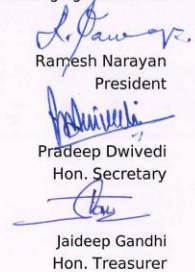 Ramesh Narayan
President
Pradeep Dwivedi
Hon. Secretary
Jaideep Gandhi
Hon. Treasurer